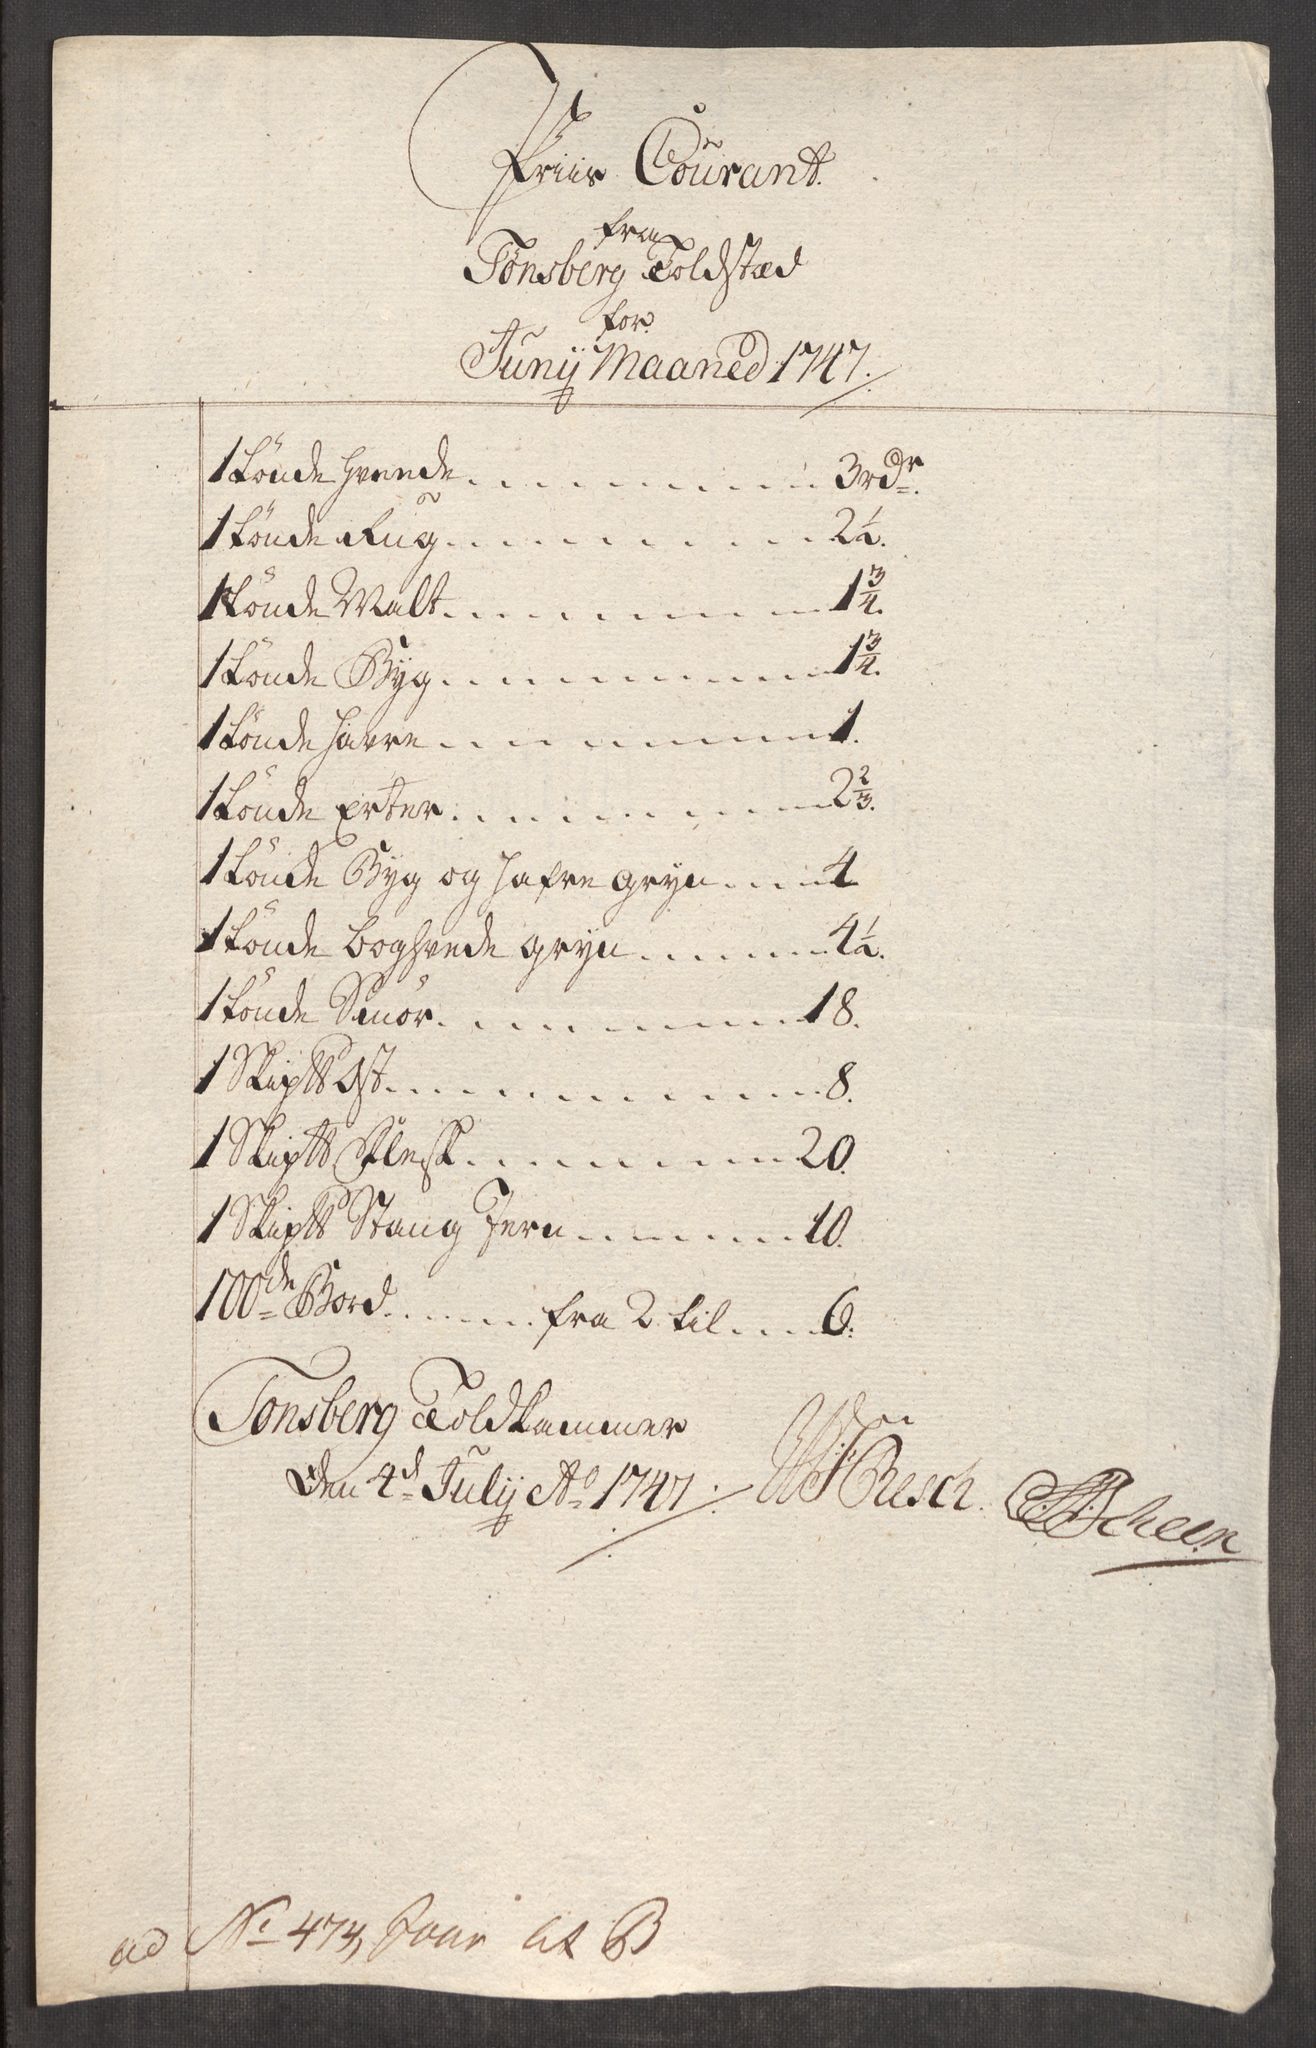 Priis Courant.
fra
Tønsberg Toldstæd
for
Junij Maaned 1747.
1 tönde Hvede 3 rdr.
1 tönde Rug 2 1/2.
1 tönde Malt 1 3/4.
1 tönde Byg 1 3/4.
1 tönde Havre 1.
1 tönde Erter 2 2/3.
1 tönde Byg og Hafre gryn 4
1 tönde boghvede gryn 4 1/2.
1 tönde Smör 18.
1 Skiptt Ost 8.
1 Skiptt Flesk 20.
1 Skiptt Stang Jern 10.
100de Bord fra 2 til 6.
Tonsberg Toldkammer
Den 4d Julij Ao 1747. Büsch. Scheen
ad No 474, Lit B